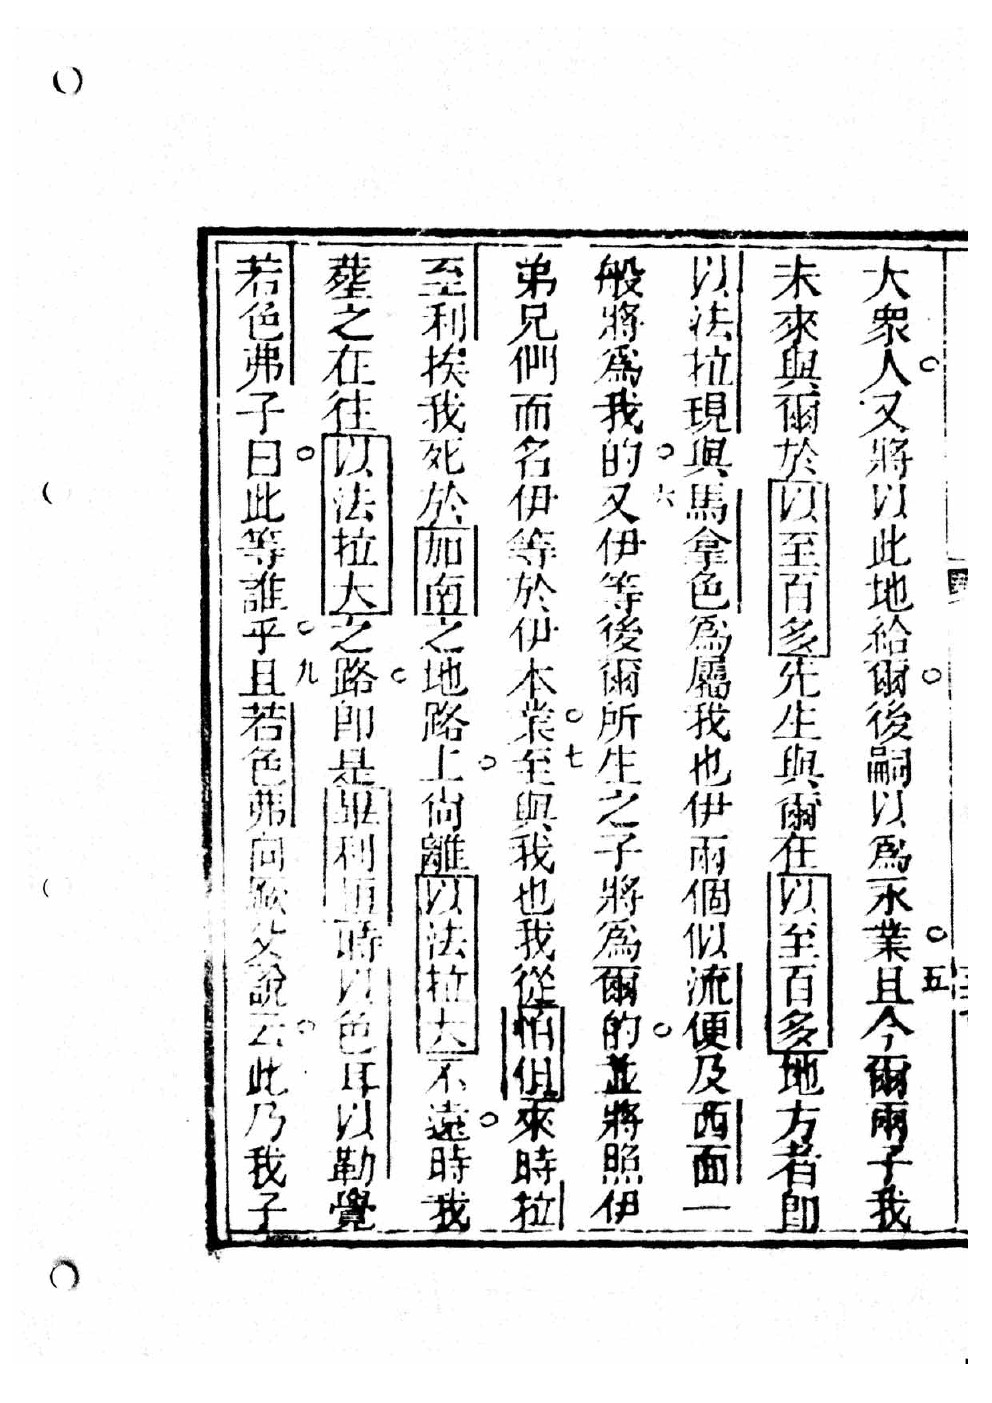 大衆人又將以此地給爾後嗣以為永業五且今爾兩子我
未來與爾於以至百多先生與爾在以至百多地方者即
以法拉現與馬拿色為屬我也伊兩個似流便及西面一
般將為我的六又伊等後爾所生之子將為爾的並將照伊
弟兄們而名伊等於伊本業七至與我也我從怕但來時拉
至利挨我死於加南之地路上尚離以法拉大不遠時我
塟之在往以法拉大之路即是畢利恒時以色耳以勒覺
若色弗子曰此等誰乎九且若色弗向厥父說云此乃我子